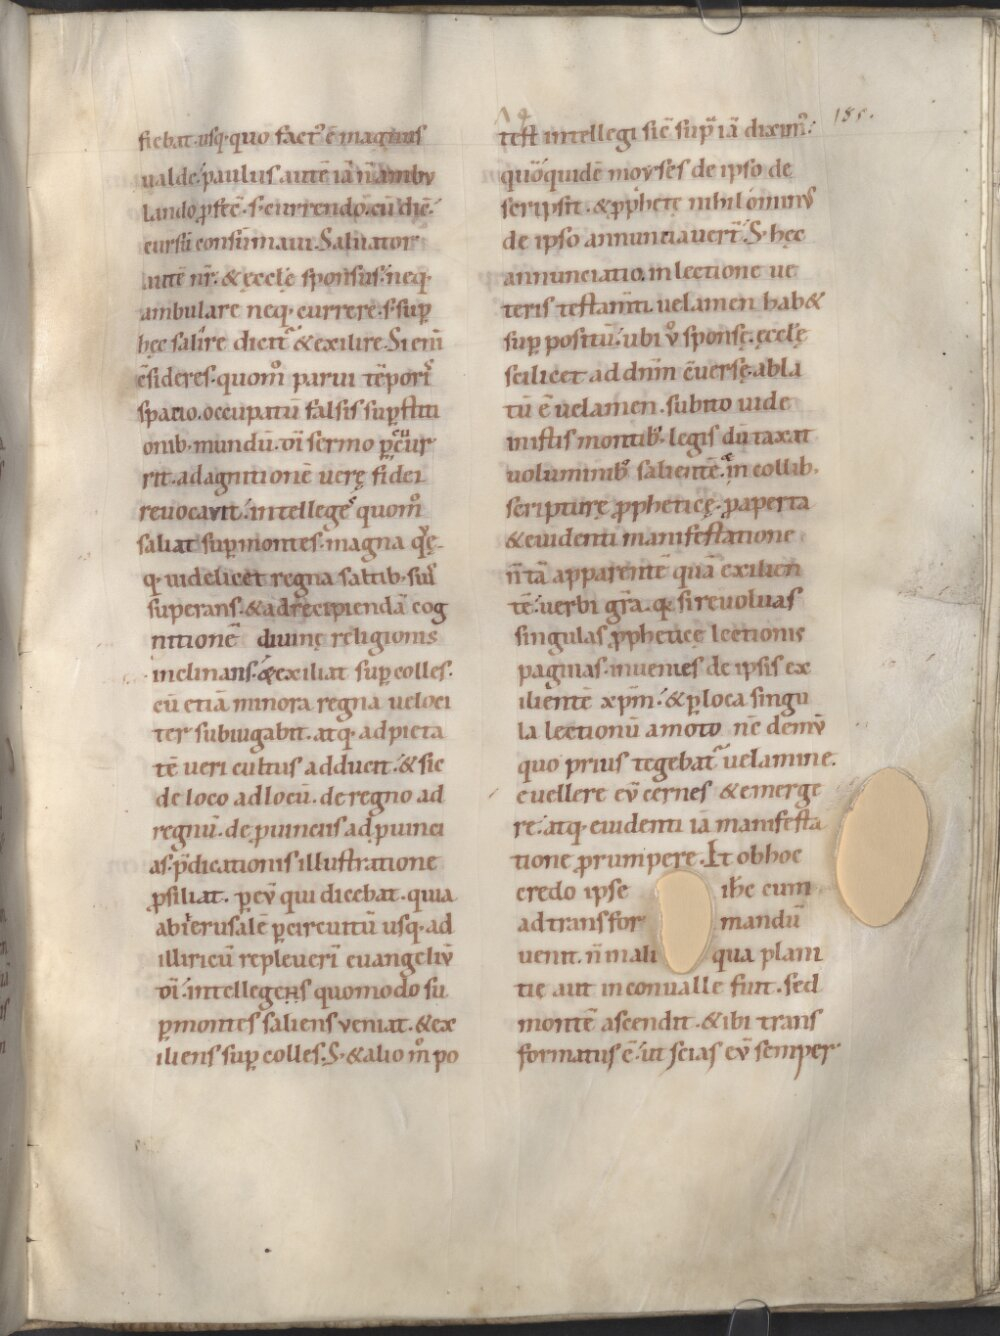 185.
fiebat. usq· quo fact᷒ ē magnus
ualde.́ paulus autē iā n̄ ambu
lando p̱ſtē·ſ· currendo. cū dic̄.́
cursū consūmaui. Saluator
autē nr̄.́ & ęcclę sponsus.́ neq·
ambulare neq· currere·ſ· sup̱
hęc salire dicit᷒ & exilire. Si eni̅
c̄sideres· quom̊ parui tēporis
spatio. occupatū falsis sup̱ſtiti
onib· mundū. dī sermo p̱cur
rit. ad agnitionē uerę fidei
reuocauit.́ intellegeˢ quom̊
saliat sup̱ montes· magna q̊ꝫ
q· uidelicet regna saltib· suis
superans.́ & ad recipiendā cog
nitionē diuinę religionis
inclinans.́ & exiliat sup̱ colles·
cū etiā minora regna ueloci
ter subiugabit. atq· ad pieta
tē ueri cultus adducit.́ & sic
de loco ad locū. de regno ad
regnū. de p̱uincus ad p̱uinci
as. p̄dicationis illuſtratione
p̱siliat. p̱ eū qui dicebat. quia
ab ierusalē p̱ circuitū usq· ad
illiricū repleueri̅ euangeliū
dī.́ intellegens quomodo su
p̱ montes saliens veniat. & ex
iliens sup̱ colles. S· & alio m̊ po
teſt intellegi sic̄ sup̄ iā dixim᷒.́
quō quidē moyses de ipso de
scripsit. & p̱phetę nihilominus
de ipso annunciauerī. S· hęc
annunciatio. in lectione ue
teris teſtam̄ti. uelamen hab&
sup̱ positū.́ ubi v̊ sponsę. ęcclę
scilicet ad dn̄m c̄uersę. abla
tū ē uelamen. subito uide
in iſtis montib᷒· legis dūtaxat
uoluminib᷒ salientē. in collib·
scripturę p̱pheticę. p̱ aperta
& euidenti manifeſtatione
n̄ tā apparentē quā exilien
tē.́ uerbi gr̄a. q· si reuoluas
singulas p̱pheticę lectionis
paginas. inuenies de ipsis ex
ilientē xp̄m.́ & p̱ loca singu
la lectionū amoto nc̄ demū
quo prius tegebat᷒ uelamine.
euellere eū cernes & emerge
re.́ atq· euidenti iā manifeſta
tione p̱rumpere. It ob hoc
credo ipse ih̄c cum
ad transfor mandū
uenit. n̄ in ali qua plani
tie aut in conualle fuit. sed
montē ascendit. & ibi trans
formatus ē.́ ut scias eū semper